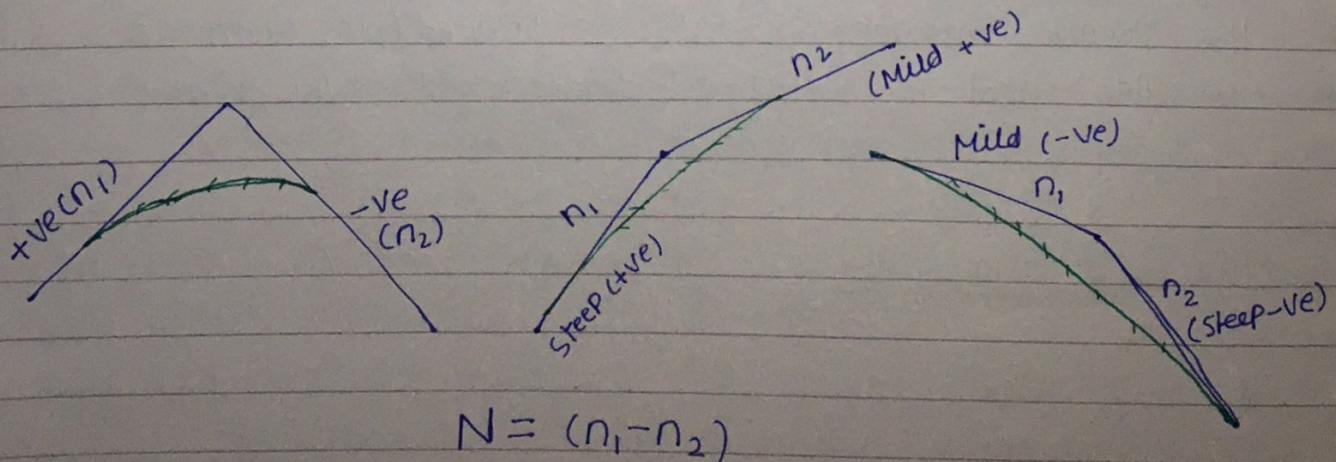 +ve (n₁)
-ve
(n₂)
n₁
Steep (+ve)
n₂
(Mild +ve)
Mild (-ve)
n₁
n₂
(Steep-ve)
N = (n₁-n₂)